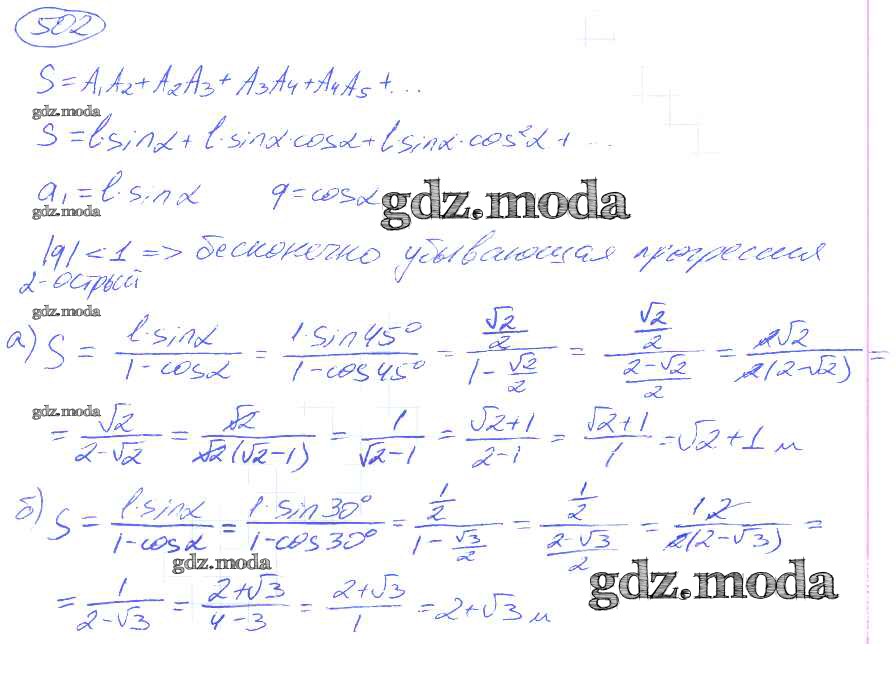 502
S = A₁A₂ + A₂A₃ + A₃A₄ + A₄A₅ + ...
gdz.moda
S = l·sinα + l·sinα·cosα + l·sinα·cos²α + ...
a₁ = l·sinα q = cosα gdz.moda
gdz.moda
|q| < 1 => бесконечно убывающая прогрессия
α-острый
gdz.moda
а) S = (l·sinα)/(1-cosα) = (1·sin45°)/(1-cos45°) = (√2/2)/(1-√2/2) = (√2/2)/((2-√2)/2) = (2√2)/(2(2-√2)) =
gdz.moda
= √2/(2-√2) = √2/(√2(√2-1)) = 1/(√2-1) = (√2+1)/(2-1) = (√2+1)/1 = √2+1 м
б) S = (l·sinα)/(1-cosα) = (1·sin30°)/(1-cos30°) = (1/2)/(1-√3/2) = (1/2)/((2-√3)/2) = (1·2)/(2(2-√3)) =
gdz.moda gdz.moda
= 1/(2-√3) = (2+√3)/(4-3) = (2+√3)/1 = 2+√3 м